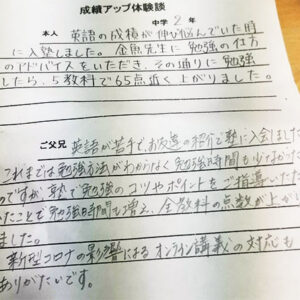 成績アップ体験談
中学 2 年
本人 英語の成績が伸び悩んでいた時
に入塾しました。金魚先生に勉強の仕方
のアドバイスをいただき、その通りに勉強
したら、5教科で65点近く上がりました。
ご父兄 英語が苦手で、お友達の紹介で塾に入会しました
これまでは勉強方法がわからなく勉強時間も少なかった
のですが、塾で勉強のコツやポイントをご指導いただ
いたことで勉強時間も増え、全教科の点数が上がり
ました。
新型コロナの影響によるオンライン講義の対応も
ありがたいです。